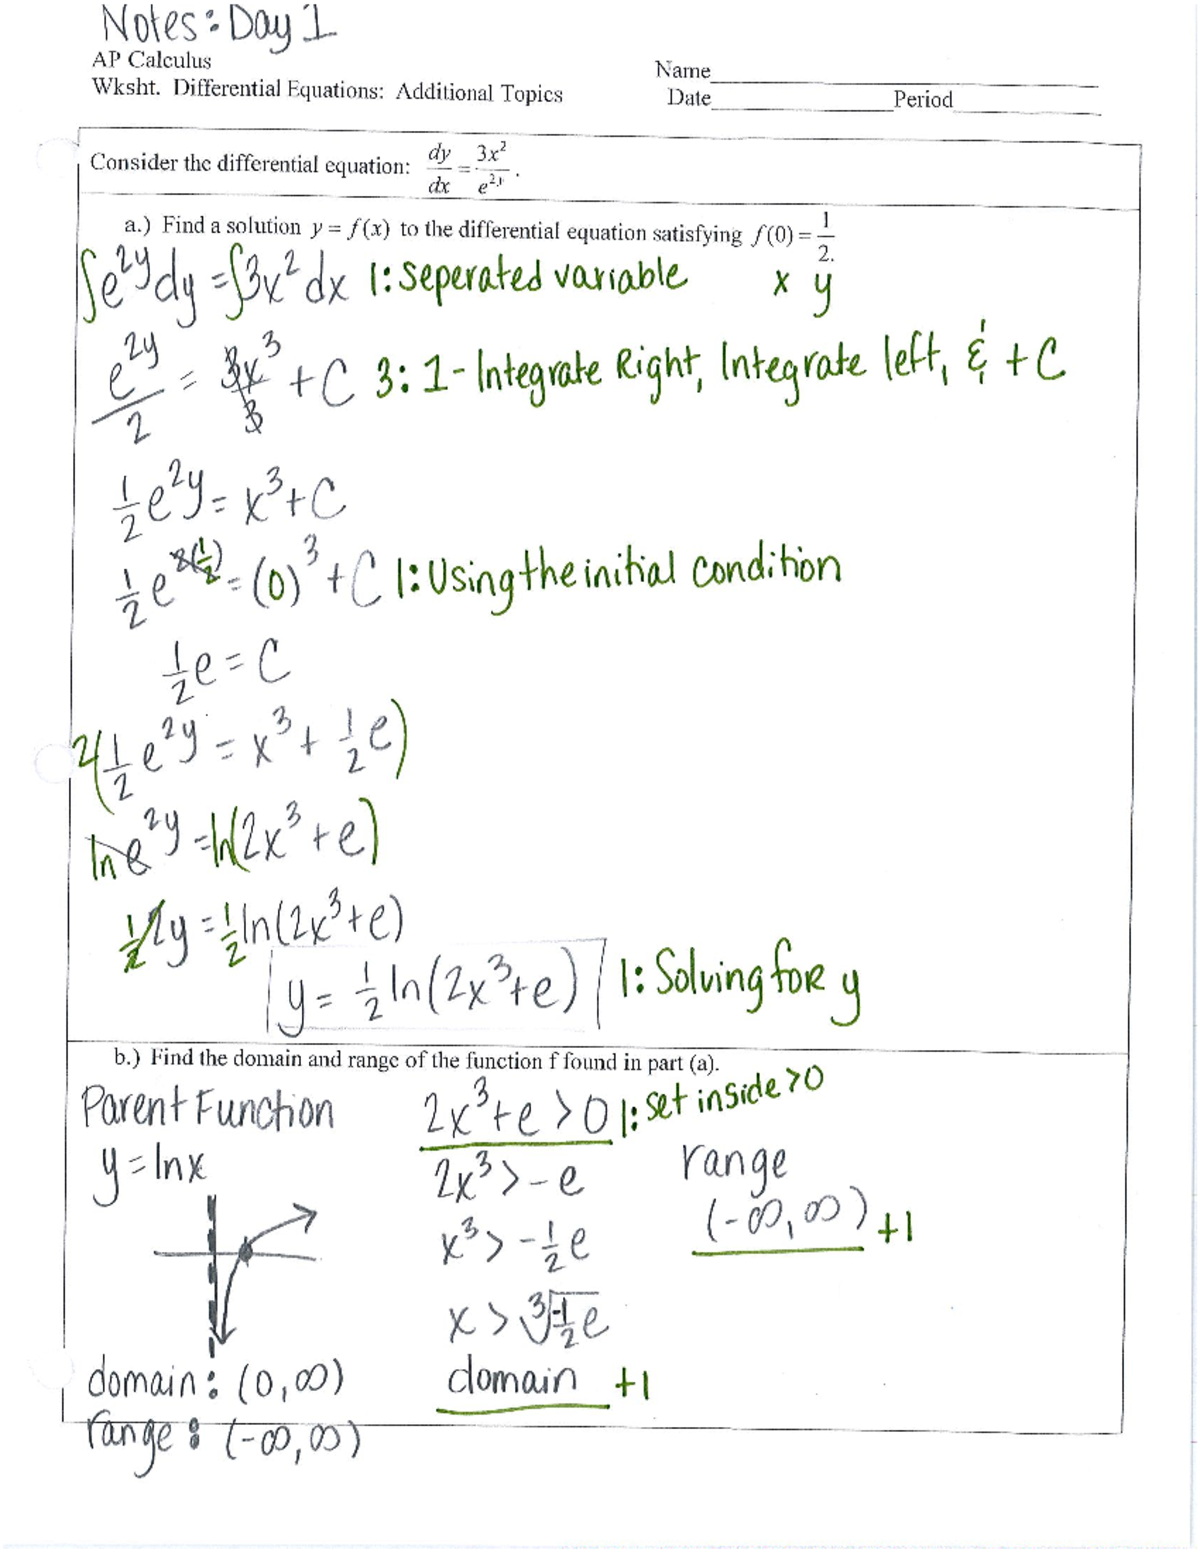 Notes: Day 1
AP Calculus
Name
Wksht. Differential Equations: Additional Topics
Date Period
Consider the differential equation: dy/dx = 3x²/e^(2y).
a.) Find a solution y = f(x) to the differential equation satisfying f(0) = 1/2.
∫e^(2y) dy = ∫3x² dx 1: Seperated variable x y
e^(2y)/2 = 3x³/3 + C 3: 1- Integrate Right, Integrate left, & + C
1/2 e^(2y) = x³ + C
1/2 e^(2(1/2)) = (0)³ + C 1: Using the initial condition
1/2 e = C
2(1/2 e^(2y) = x³ + 1/2 e)
ln e^(2y) = ln(2x³ + e)
1/2 2y = 1/2 ln(2x³ + e)
y = 1/2 ln(2x³ + e) 1: Solving for y
b.) Find the domain and range of the function f found in part (a).
Parent Function
y = ln x
domain: (0, ∞)
range: (-∞, ∞)
2x³ + e > 0 1: set inside > 0
2x³ > -e
x³ > -1/2 e
x > ³√(-1/2 e)
domain +1
range
(-∞, ∞) +1